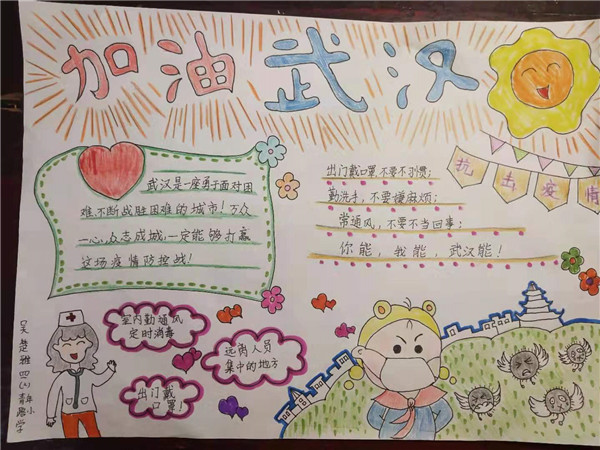 加油武汉
武汉是一座勇于面对困
难,不断战胜困难的城市!万众
一心,众志成城,一定能够打赢
这场疫情防控战!
出门戴口罩,不要不习惯;
勤洗手,不要嫌麻烦;
常通风,不要不当回事;
你能,我能,武汉能!
抗击疫情
室内勤通风
定时消毒
远离人员
集中的地方
出门戴
口罩!
吴楚雅 四(1)